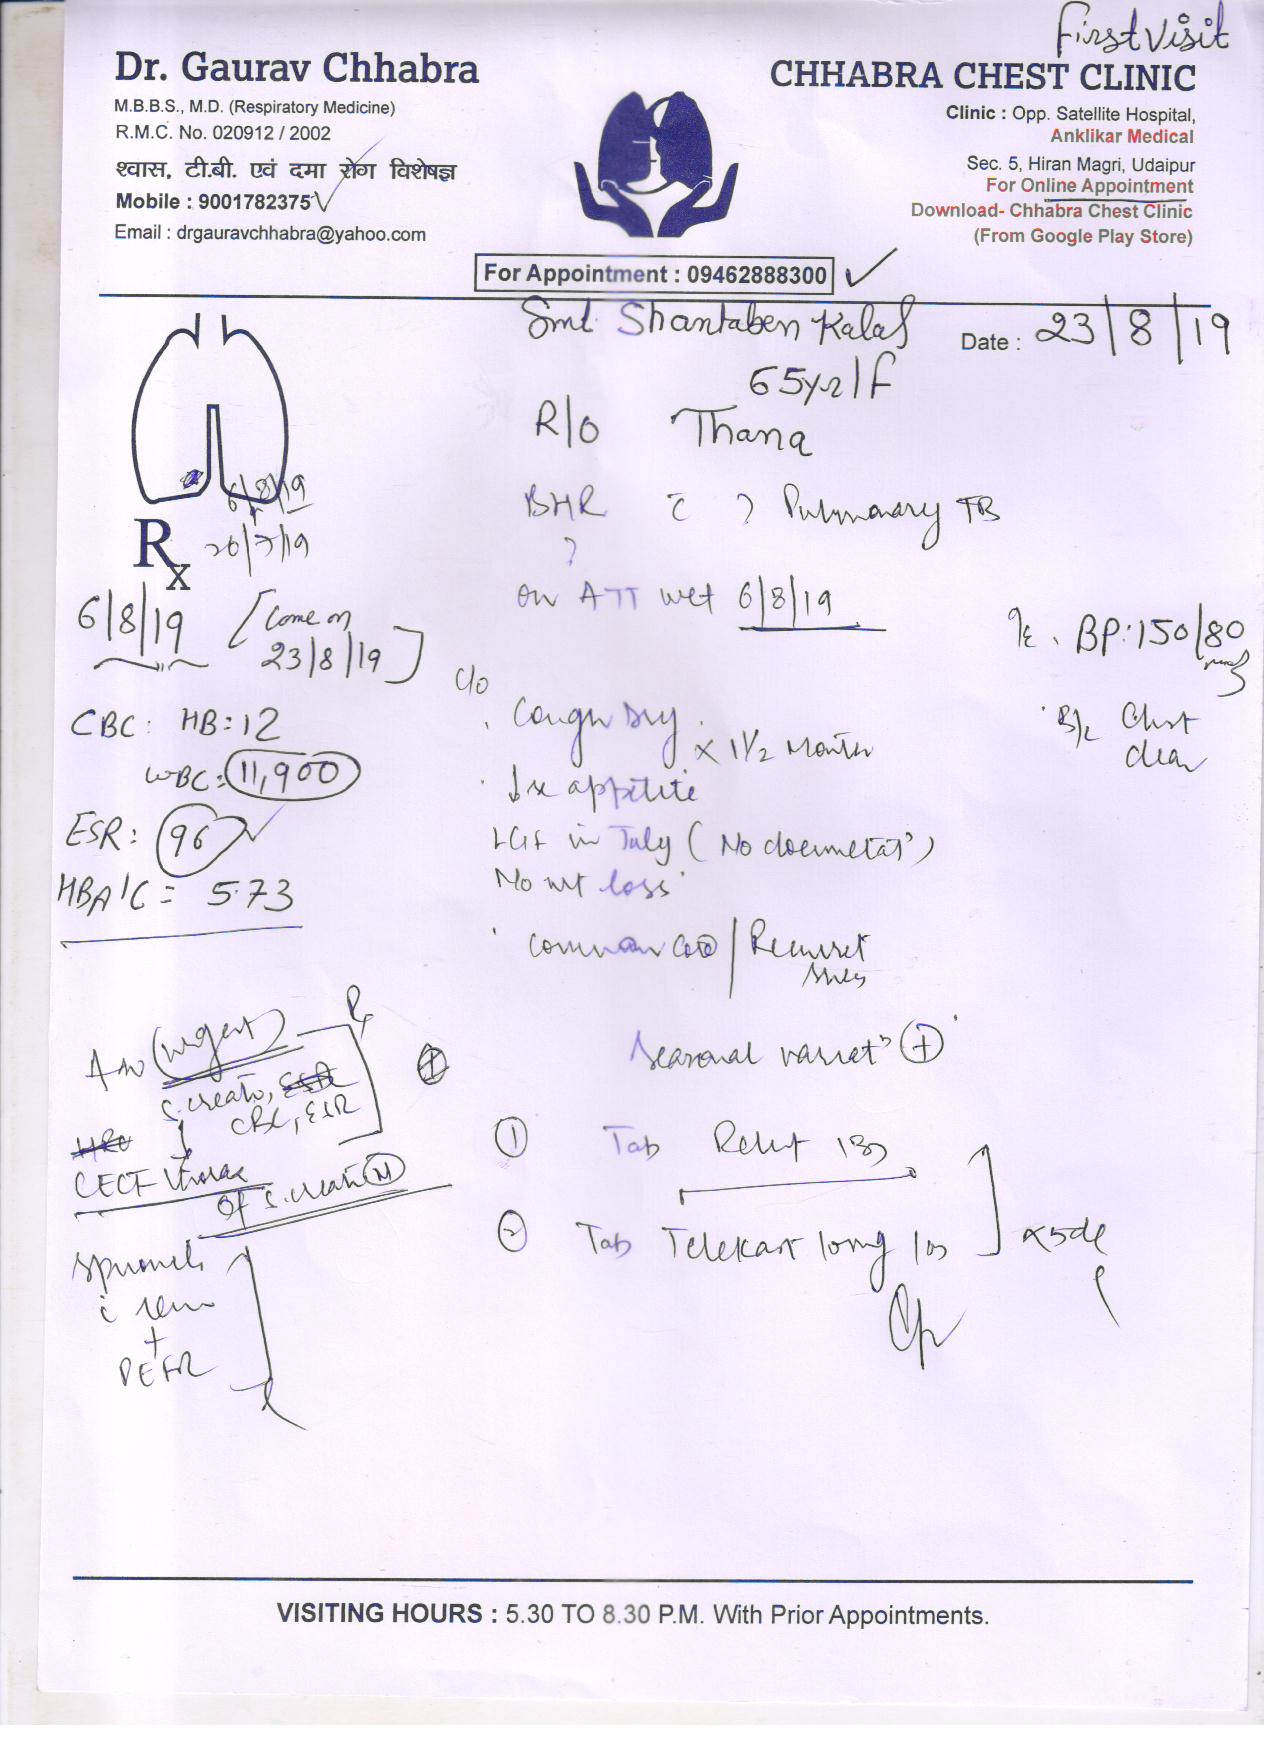 First visit
Dr. Gaurav Chhabra
M.B.B.S., M.D. (Respiratory Medicine)
R.M.C. No. 020912 / 2002
श्वास, टी.बी. एवं दमा रोग विशेषज्ञ
Mobile : 9001782375
Email : drgauravchhabra@yahoo.com
CHHABRA CHEST CLINIC
Clinic : Opp. Satellite Hospital,
Anklikar Medical
Sec. 5, Hiran Magri, Udaipur
For Online Appointment
Download- Chhabra Chest Clinic
(From Google Play Store)
For Appointment : 09462888300
Smt. Shantaben
Date : 23/8/19
65yr/f
R/o Thana
6/8/19
20/7/19
Rx
BHR c ? Pulmonary TB
?
on ATT wef 6/8/19
6/8/19 [Come on
23/8/19]
BP: 150/80
B/L Chest
clear
c/o
Cough dry
x 1 1/2 Month
appetite
in July (No
No wt loss
CBC: HB: 12
WBC: 11,900
ESR: 96
HBA1C = 5.73
common cold / Recurrent
Seasonal (+)
Adv (urgent)
S. creat, ESR
CBC, ESR
CECT Thorax
If S. creat (N)
(1) Tab
(2) Tab Telekast long
x 5d
+
PEFR
VISITING HOURS : 5.30 TO 8.30 P.M. With Prior Appointments.